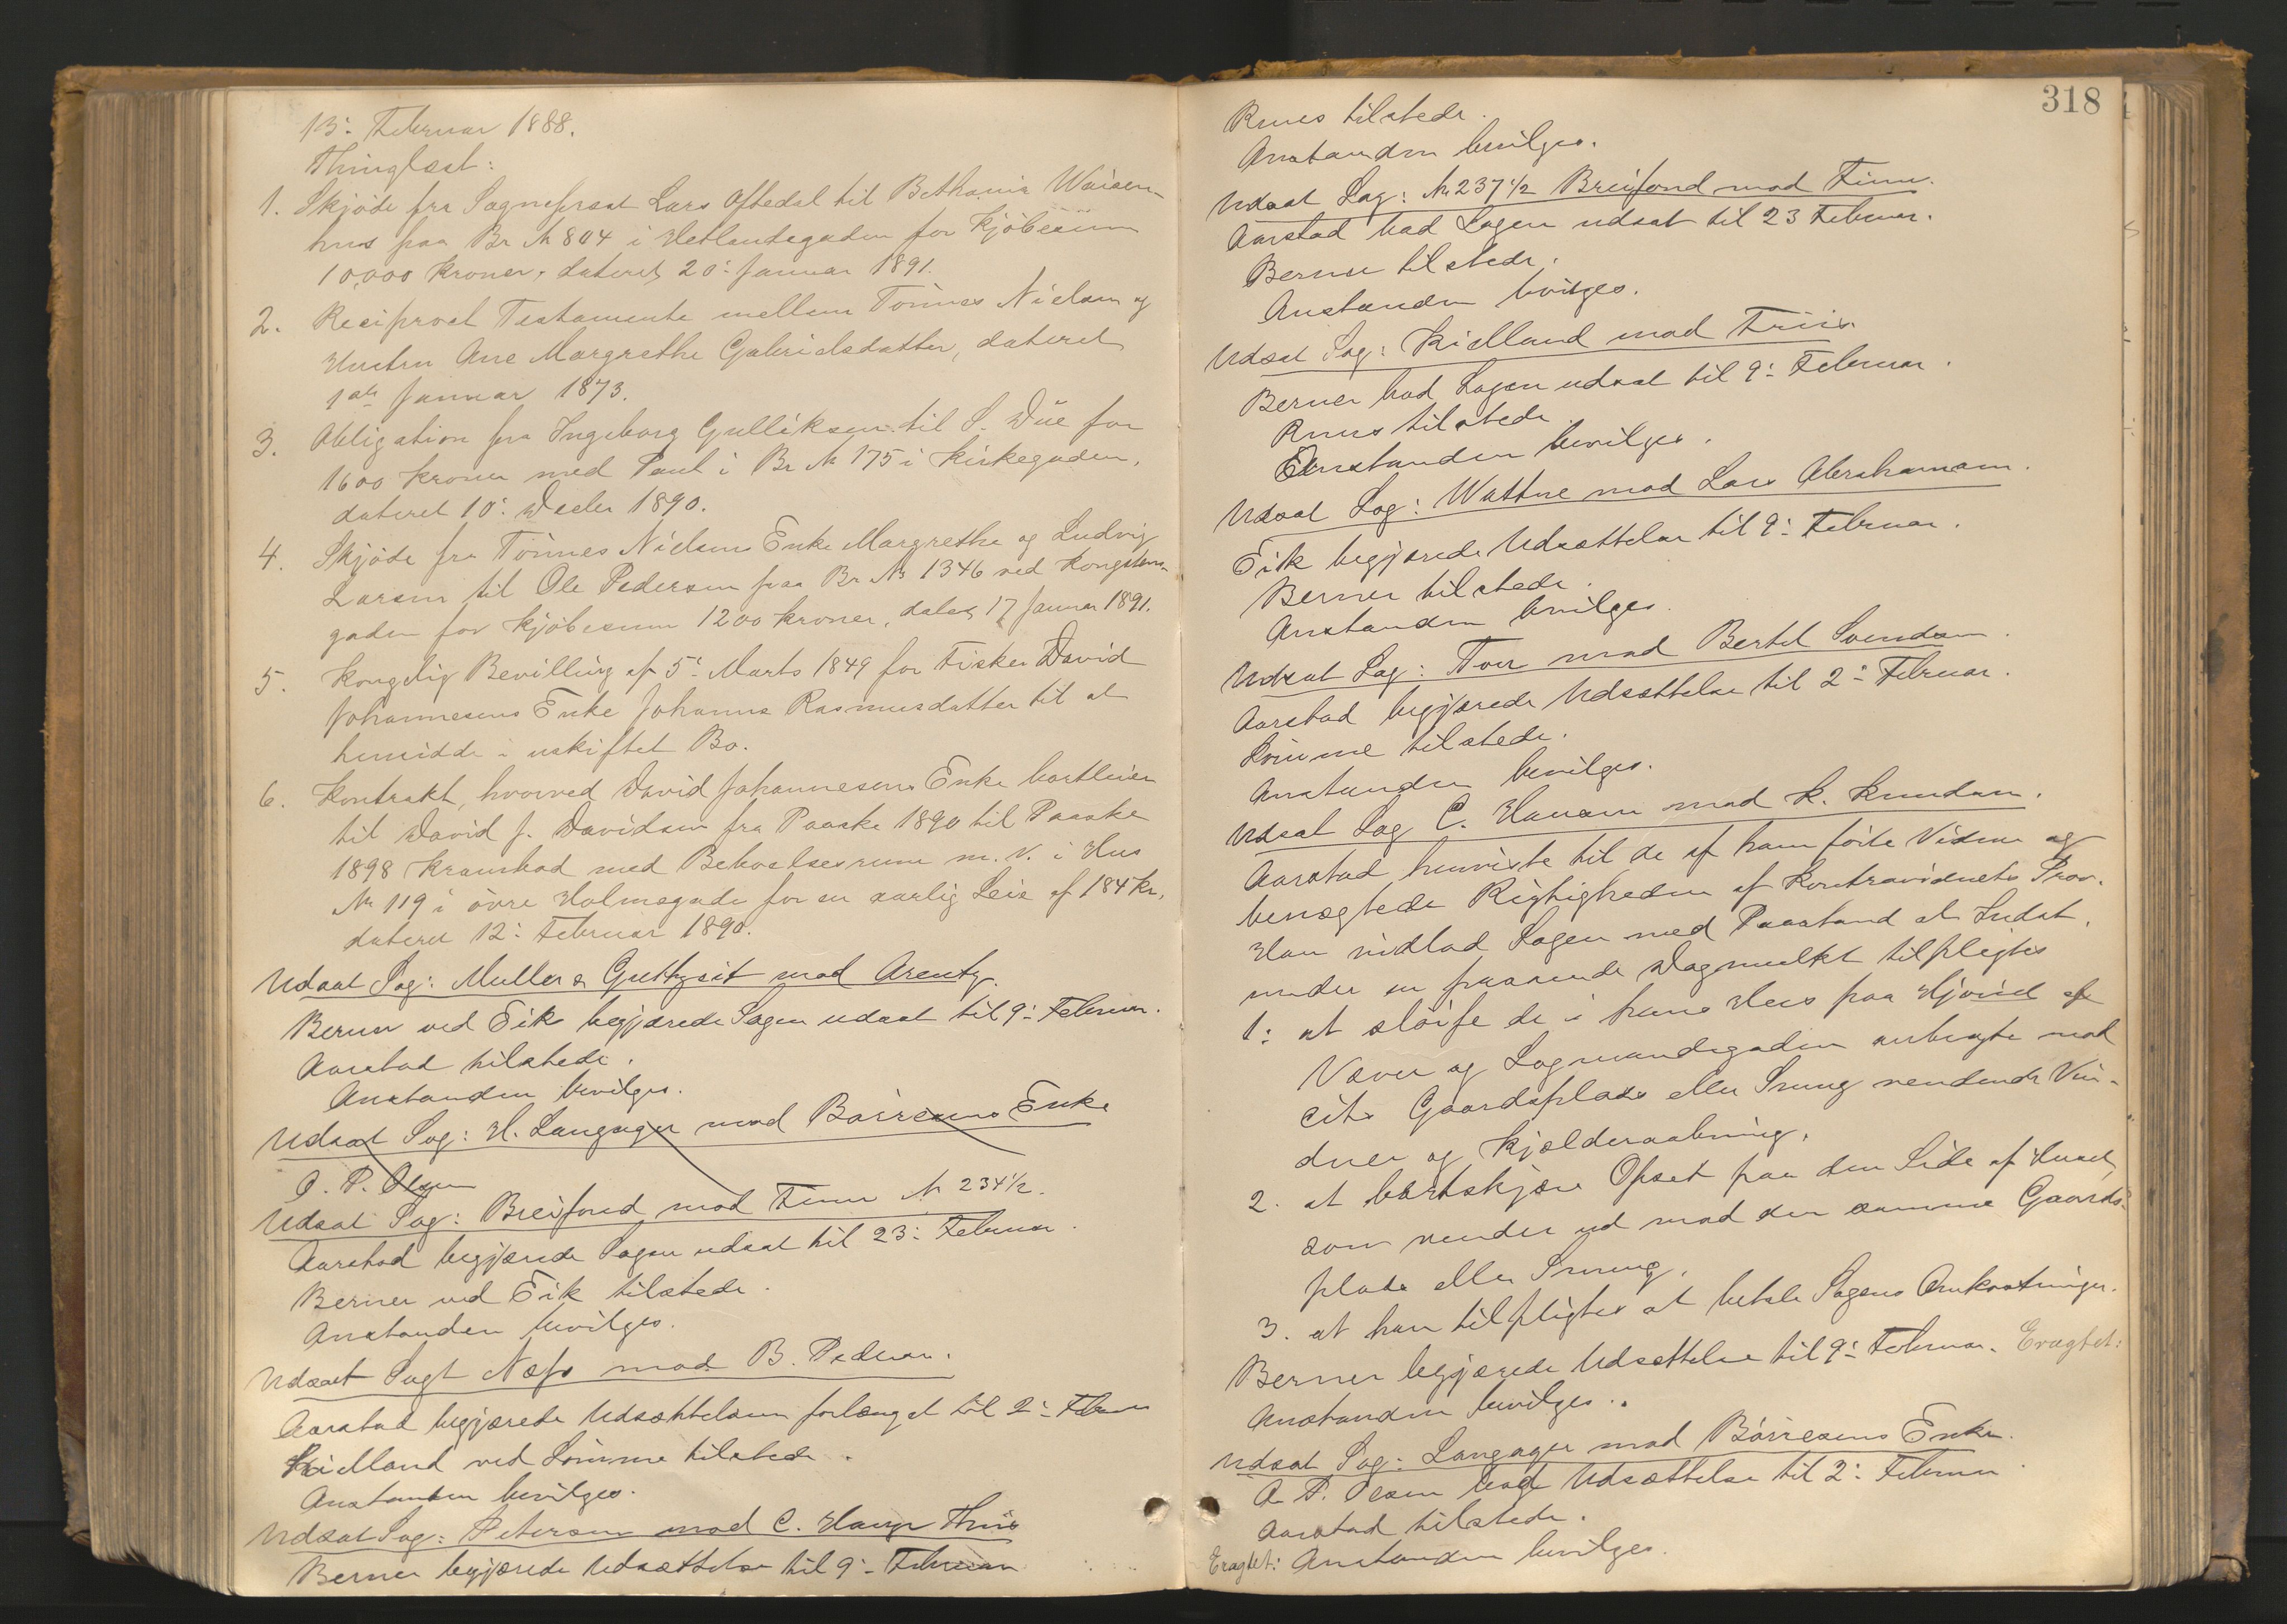 13: Februar 1888.
Thinglæst:
1. Skjöde fra Sognepræst Lars Oftedal til Bethania Waisen-
hus paa Br № 804 i Hetlandsgaden for Kjöbesum
10,000 Kroner, dateret 20: Januar 1891.
2. Reciproct Testamente mellem Tönnes Nielsen og
Hustru Ane Margrethe Gabrielsdatter, dateret
1ste Januar 1873.
3. Obligation fra Ingeborg Gulliksen til S. Düe for
1600 Kroner med Pant i Br № 175 i Kirkegaden,
dateret 10: Decbr 1890.
4. Skjöde fra Tönnes Nielsens Enke Margrethe og Ludvig
Larsen til Ole Pedersen paa Br № 1346 ved Kongstens-
gaden for Kjöbesum 1200 Kroner, dateret 17 Januar 1891.
5. Kongelig Bevilling af 5: Marts 1849 for Fisker David
Johannesens Enke Johanne Rasmusdatter til at
hensidde i uskiftet Bo.
6. Kontrakt, hvorved David Johannesens Enke bortleier
til David J. Davidsen fra Paaske 1890 til Paaske
1898 Krambod med Beboelsesrum m. v. i Hus
№ 119 i övre Holmegade for en aarlig Leie af 184 Kr,
dateret 12: Februar 1890.
Udsat Sag: Muller & Guttzeit mod Arentz.
Berner ved Eik begjærede Sagen udsat til 9: Februar.
Aarstad tilstede.
Anstanden bevilges.
Udsat Sag: H. Langager mod Börresens Enke
O. P. Olsen
Udsat Sag: Breifond mod Finn № 234½.
Aarstad begjærede Sagen udsat til 23: Februar.
Berner ved Eik tilstede.
Anstanden bevilges.
Udsat Sag: Næss mod B. Pedersen.
Aarstad begjærede Udsættelsen forlænget til 2: Februar
Kielland ved Lömme tilstede.
Anstanden bevilges.
Udsat Sag: Petersen mod C. Hauge Thiis
Berner begjærede Udsættelse til 9: Februar
318
Knus tilstede.
Anstanden bevilges.
Udsat Sag: № 237½ Breifond mod Finn.
Aarstad bad Sagen udsat til 23 Februar.
Berner tilstede.
Anstanden bevilges.
Udsat Sag: Kielland mod Friis.
Berner bad Sagen udsat til 9: Februar.
Knus tilstede
Anstanden bevilges.
Udsat Sag: Wattne mod Lars Abrahamsen.
Eik begjærede Udsættelse til 9: Februar.
Berner tilstede.
Anstanden bevilges.
Udsat Sag: Tou mod Bertel Svendsen.
Aarstad begjærede Udsættelse til 2: Februar.
Lömme tilstede.
Anstanden bevilges.
Udsat Sag C. Hansen mod K. Knudsen.
Aarstad henviste til de af ham förte Vidner og
benægtede Rigtigheden af Kontravidnets Prov.
Han indlod Sagen med Paastand at Indst.
under en passende Dagmulkt tilpligtes
1: at slöife de i hans Hus paa Hjörnet af
Væver og Lagmandsgaden anbragte mod
Cit. Gaardsplads eller Smug vendende Vin-
duer og Kjælderaabning,
2. at bortskjære Opset paa den Side af Huset,
som vender ud mod den samme Gaards-
plads eller Smug,
3. at han tilpligtes at betale Sagens Omkostninger.
Berner begjærede Udsættelse til 9: Februar. Eragtet:
Anstanden bevilges.
Udsat Sag: Langager mod Börresens Enke.
O. P. Olsen bad Udsættelse til 2: Februar.
Aarstad tilstede.
Eragtet: Anstanden bevilges.